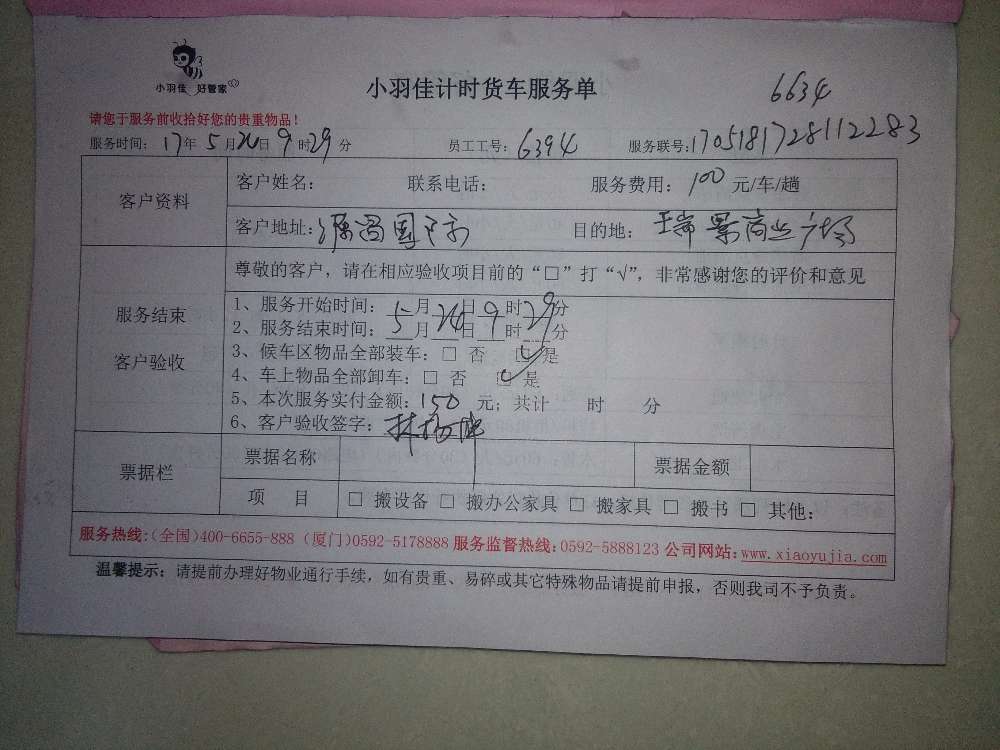 小羽佳 好管家
小羽佳计时货车服务单
6634
请您于服务前收拾好您的贵重物品!
服务时间: 17年 5月20日 9时29分 员工工号: 6394 服务联号:1705181728112283
客户资料
客户姓名: 联系电话: 服务费用: 100 元/车/趟
客户地址: 源昌国 目的地: 瑞景商业广场
尊敬的客户,请在相应验收项目前的“□”打“√”,非常感谢您的评价和意见
服务结束
客户验收
1、服务开始时间: 5月20日9时29分
2、服务结束时间: 月 日 时 分
3、候车区物品全部装车:□ 否 ☑ 是
4、车上物品全部卸车:□ 否 ☑ 是
5、本次服务实付金额:150 元;共计 时 分
6、客户验收签字:
票据栏
票据名称 票据金额
项 目 □ 搬设备 □ 搬办公家具 □ 搬家具 □ 搬书 □ 其他:
服务热线:(全国)400-6655-888 (厦门)0592-5178888 服务监督热线:0592-5888123 公司网站:www.xiaoyujia.com
温馨提示:请提前办理好物业通行手续,如有贵重、易碎或其它特殊物品请提前申报,否则我司不予负责。